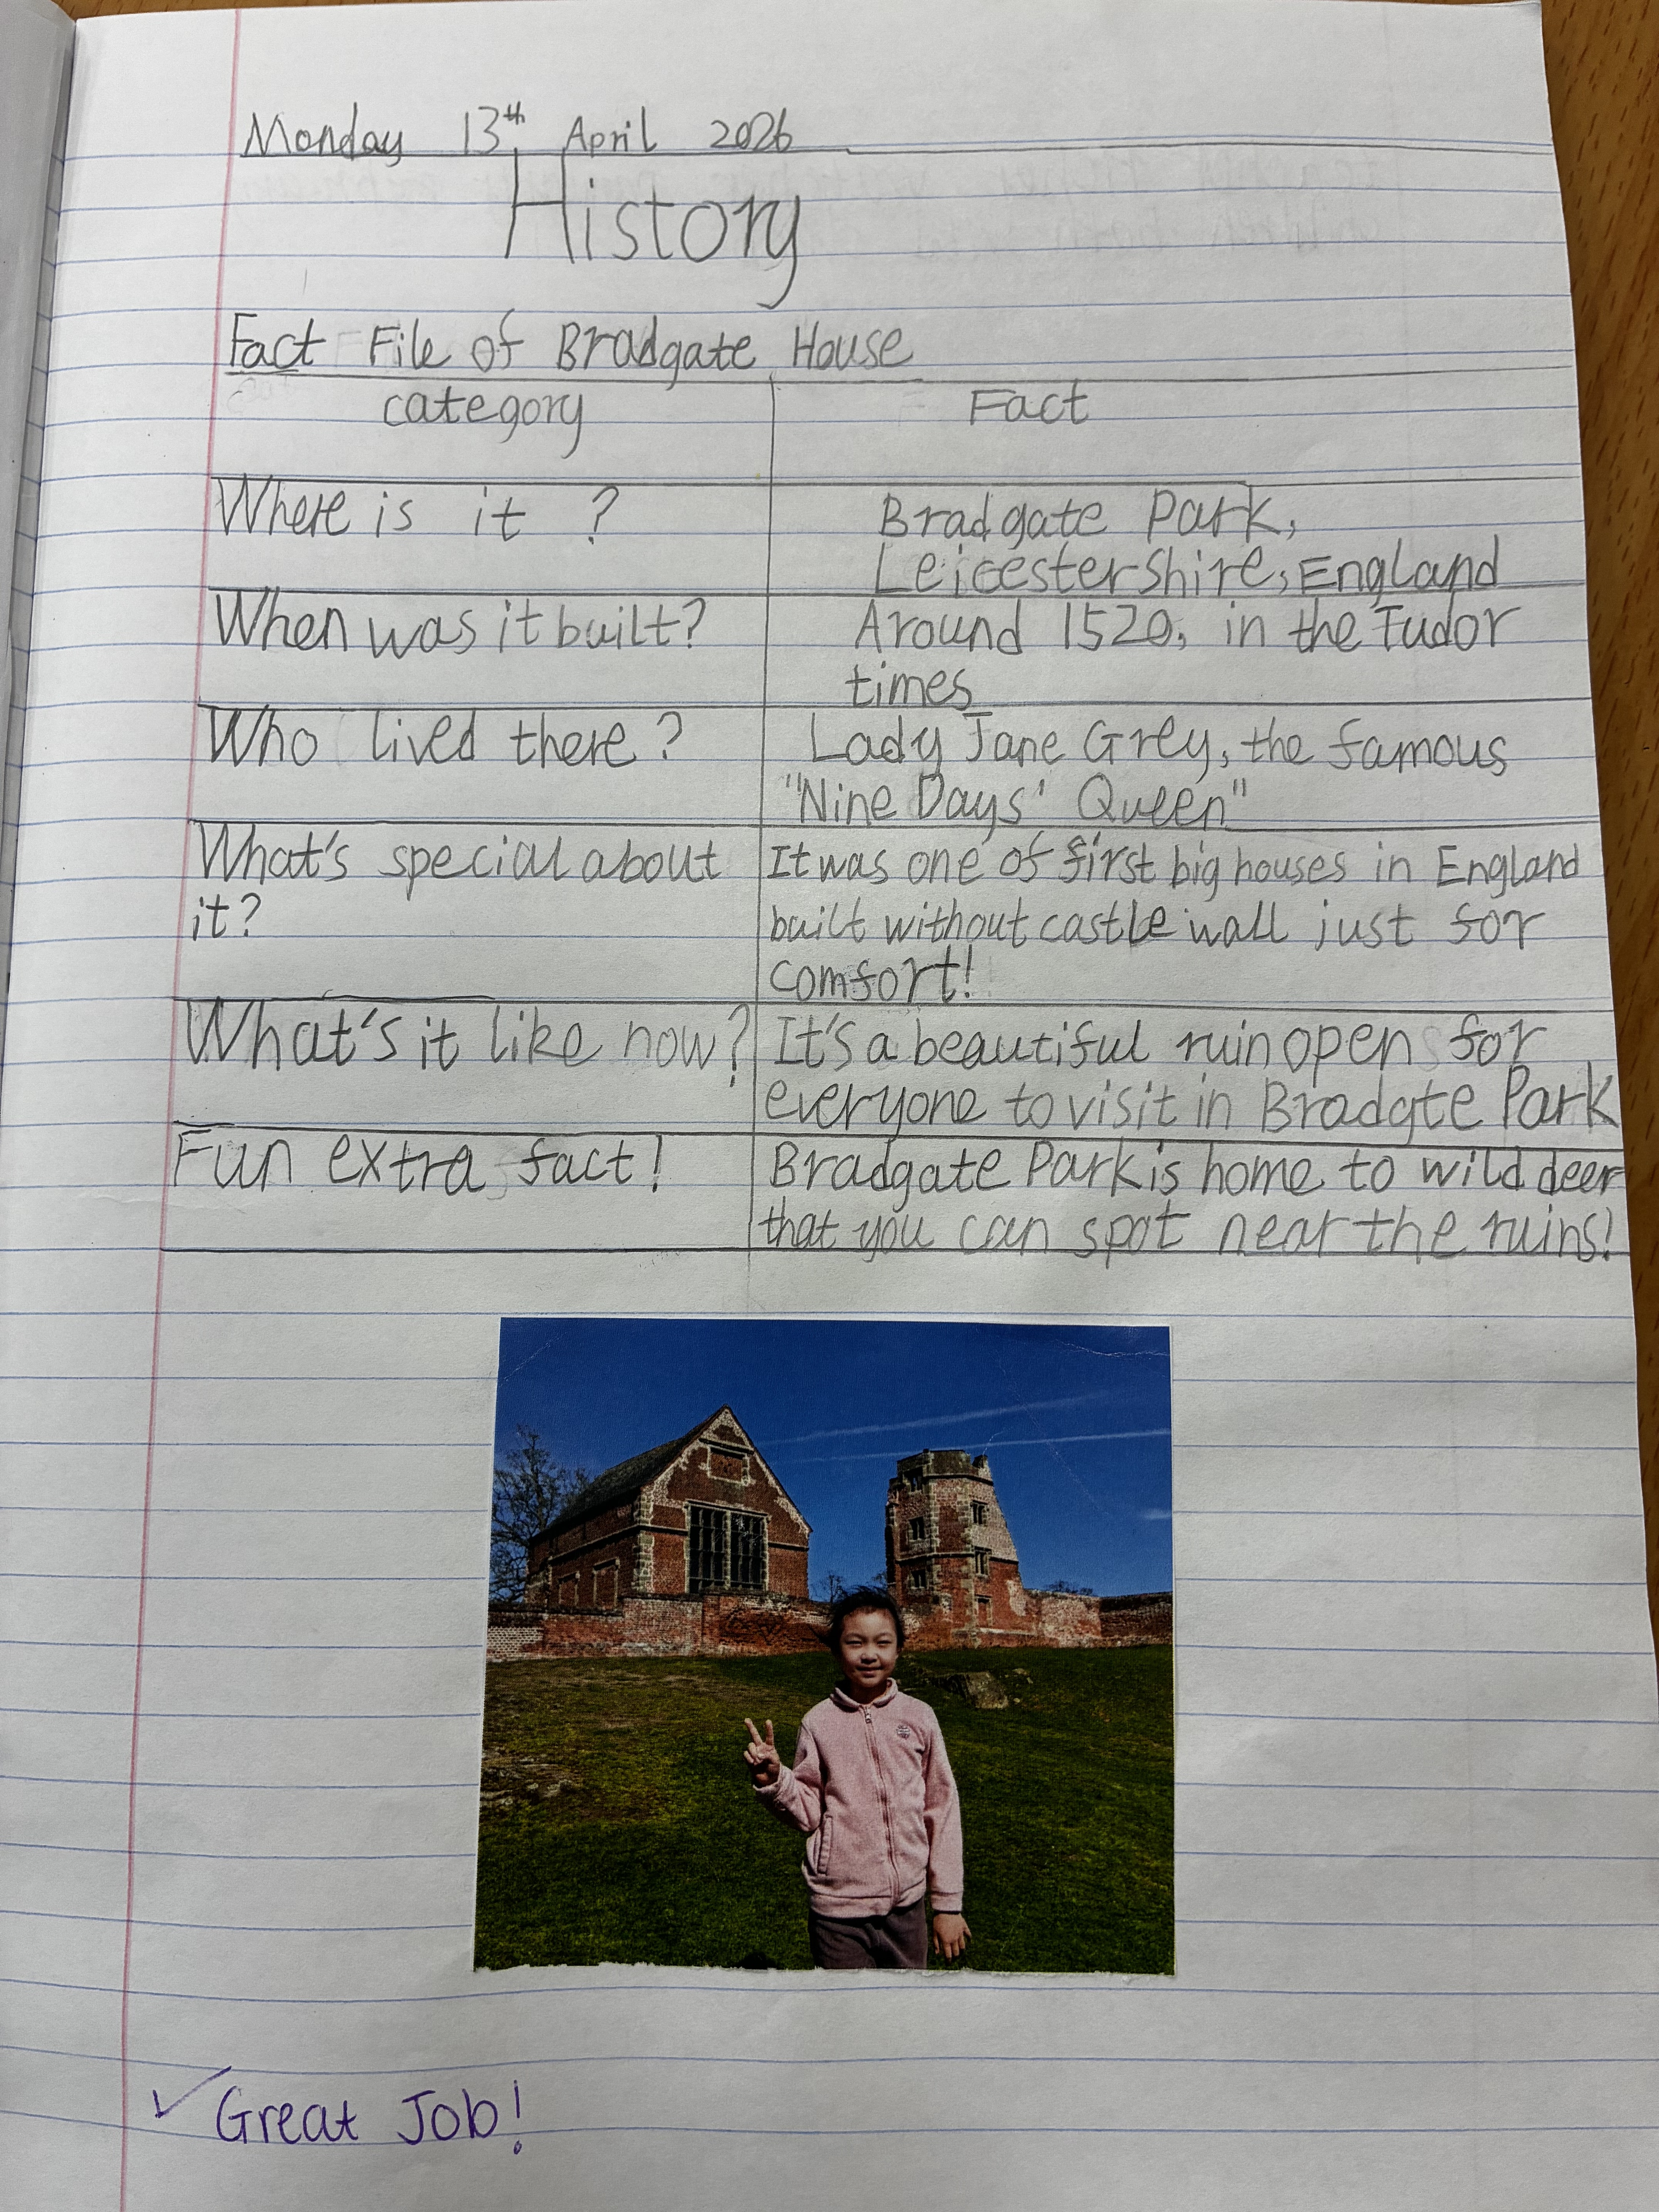 Monday 13th April 2026
History
Fact File of Bradgate House
category Fact
Where is it ? Bradgate Park,
Leicestershire, England
When was it built? Around 1520, in the Tudor
times
Who lived there? Lady Jane Grey, the famous
"Nine Days' Queen"
What's special about It was one of first big houses in England
it? built without castle wall just for
comfort!
What's it like now? It's a beautiful ruin open for
everyone to visit in Bradgte Park
Fun extra fact! Bradgate Park is home to wild deer
that you can spot near the ruins!
✓ Great Job!